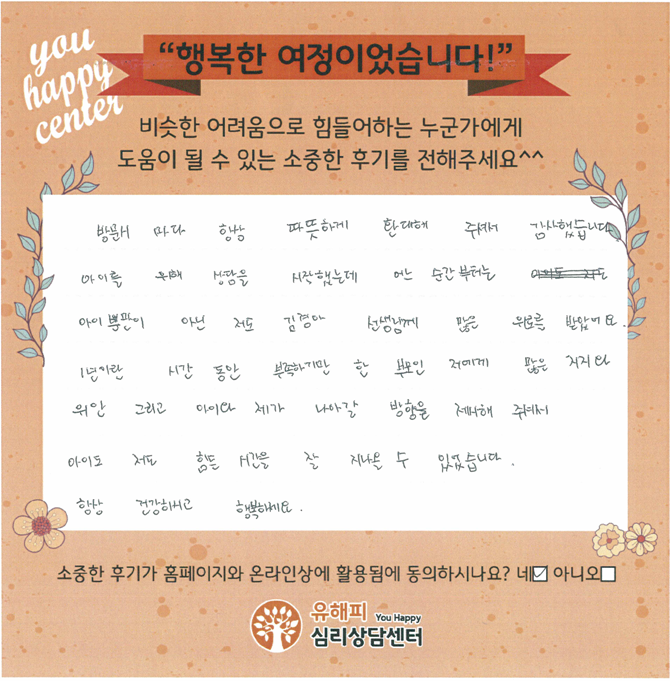 you
happy
center
“행복한 여정이었습니다!”
비슷한 어려움으로 힘들어하는 누군가에게
도움이 될 수 있는 소중한 후기를 전해주세요^^
방문시 마다 항상 따뜻하게 환대해 주셔서 감사했습니다.
아이를 위해 상담을 시작했는데 어느 순간부터는
아이뿐만이 아닌 저도 김경아 선생님께 많은 위로를 받았어요.
1년이란 시간 동안 부족하지만 한 부모인 저에게 많은 지지와
위안 그리고 아이와 제가 나아갈 방향을 제시해 주셔서
아이도 저도 힘든 시간을 잘 지나올 수 있었습니다.
항상 건강하시고 행복하세요.
소중한 후기가 홈페이지와 온라인상에 활용됨에 동의하시나요? 네☑ 아니오☐
유해피 You Happy
심리상담센터